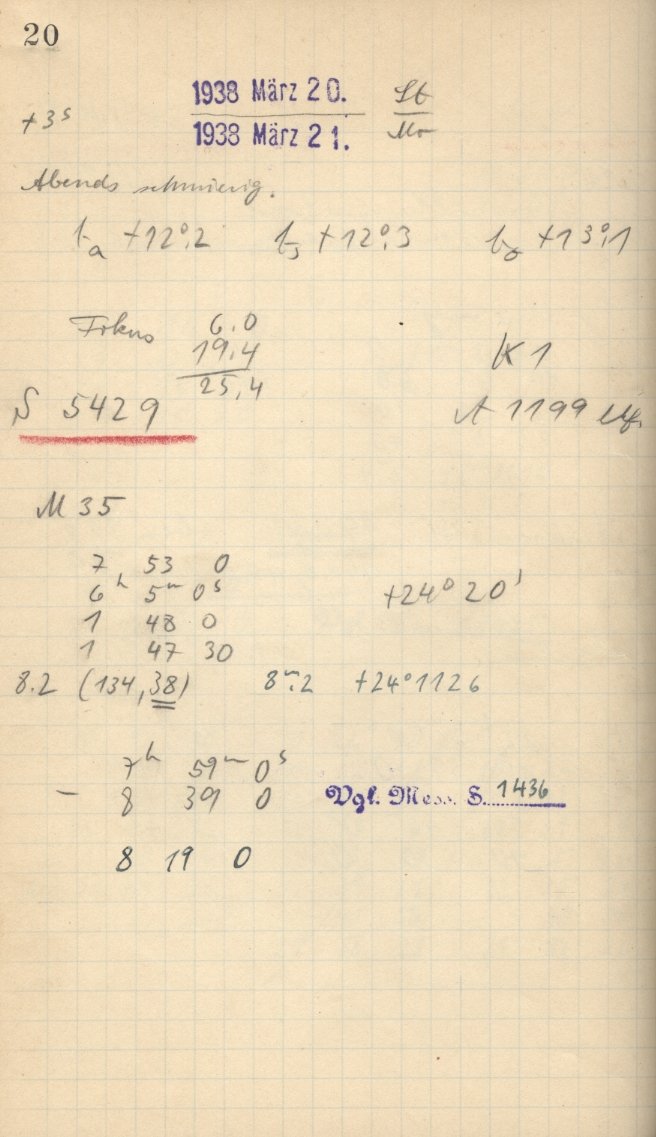 20
1938 März 20. St
+3ˢ
1938 März 21. Mo
Abends schmierig.
tₐ +12°,2 tₛ +12°,3 t₀ +13°,1
Fokus 6.0
19.4
25,4
K 1
S 5429 A 1199
M 35
7 53 0
6ʰ 5ᵐ 0ˢ +24° 20'
1 48 0
1 47 30
8.2 (134,38) 8ᵐ.2 +24°1126
7ʰ 59ᵐ 0ˢ
– 8 39 0 Vgl. Mess. S. 1436
8 19 0